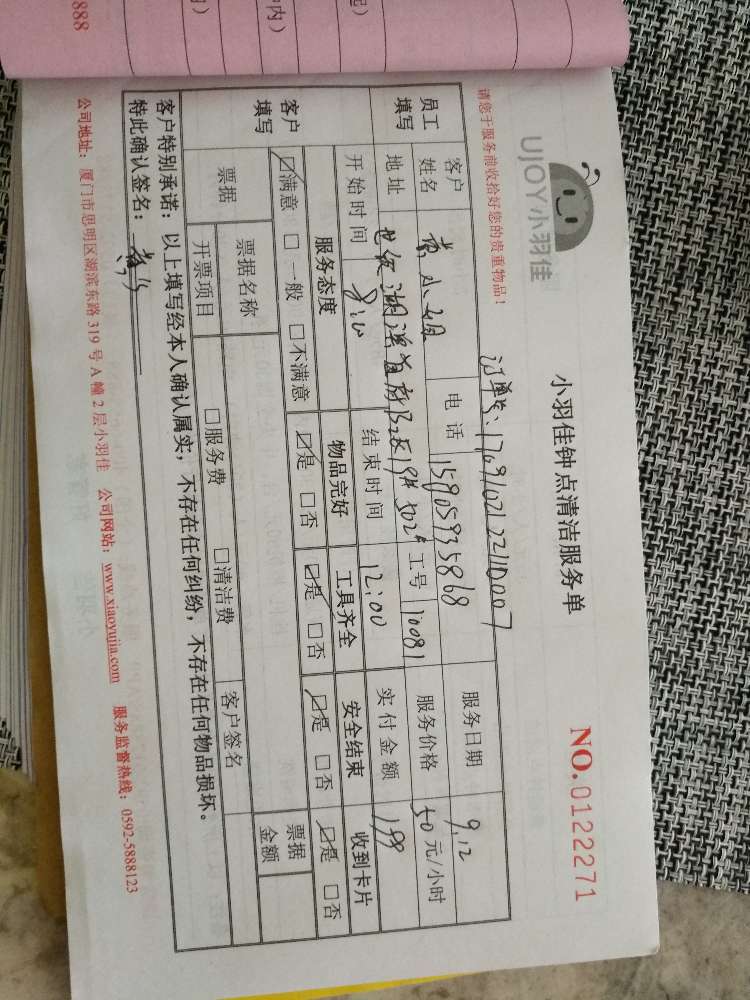 888
内)
中内)
起)
UJOY小羽佳
小羽佳钟点清洁服务单
NO.0122271
请您于服务前收拾好您的贵重物品!
订单号:
员工填写
客户姓名
小姐
电话
15905935868
服务日期
9.12
地址
502#
工号
10081
服务价格
50元/小时
开始时间
结束时间
12:00
实付金额
199
客户填写
服务态度
物品完好
工具齐全
安全结束
收到卡片
☑满意 □一般 □不满意
☑是 □否
☑是 □否
☑是 □否
☑是 □否
票据
票据名称
票据金额
开票项目
□服务费 □清洁费
客户签名
客户特别承诺:以上填写经本人确认属实,不存在任何纠纷,不存在任何物品损坏。
特此确认签名:
公司地址:厦门市思明区湖滨东路319号A幢2层小羽佳 公司网站:www.xiaoyujia.com 服务监督热线:0592-5888123